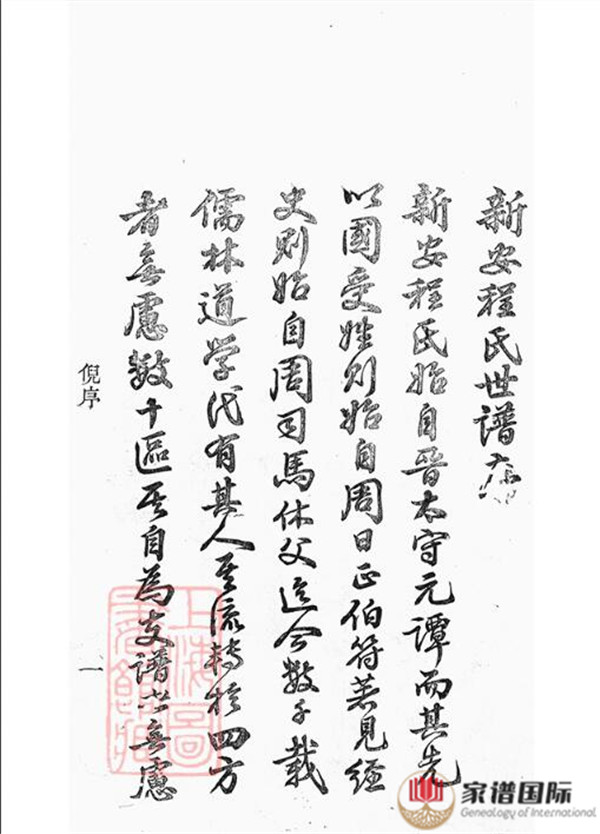 新安程氏世谱序
新安程氏始自晉太守元譚而其先
以國受姓则始自周日正伯符若見經
史则始自周司馬休父迄今数千載
儒林道学代有其人其流轉於四方
者無慮数十區其自為支譜亦無慮
倪序
一
上海圖書館藏
家谱国际
Genealogy of International